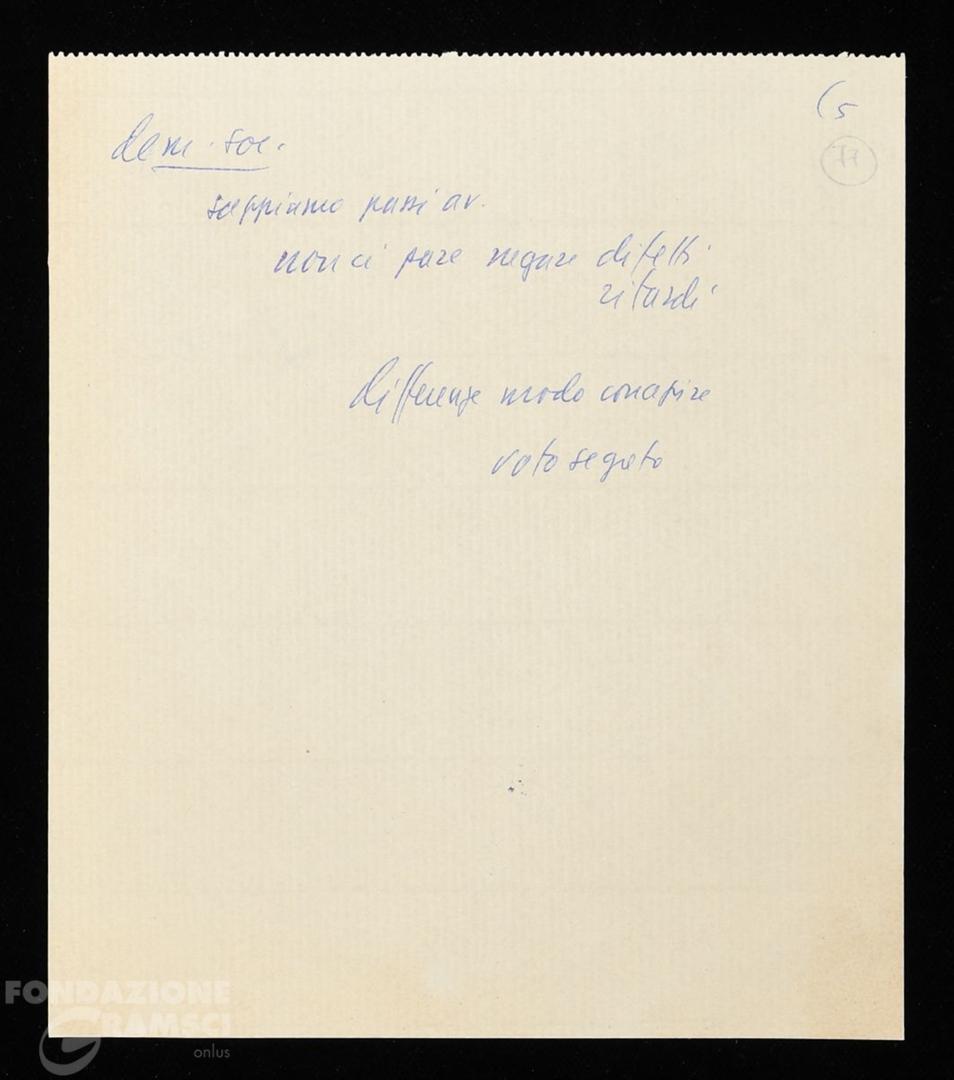 (5
77
dem. soc.
sappiamo passi av.
non ci pare negare difetti
ritardi
differenze modo concepire
voto segreto
FONDAZIONE
GRAMSCI
onlus